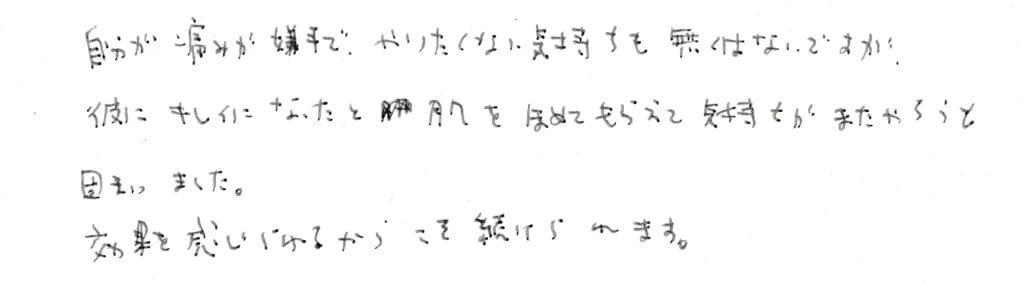 自分が痛みが嫌手で、やりたくない気持ちも無くはないですが、
彼にキレイになったと肌をほめてもらえて気持ちがまたやろうと
固まいました。
効果を感じられるからこそ続けられます。